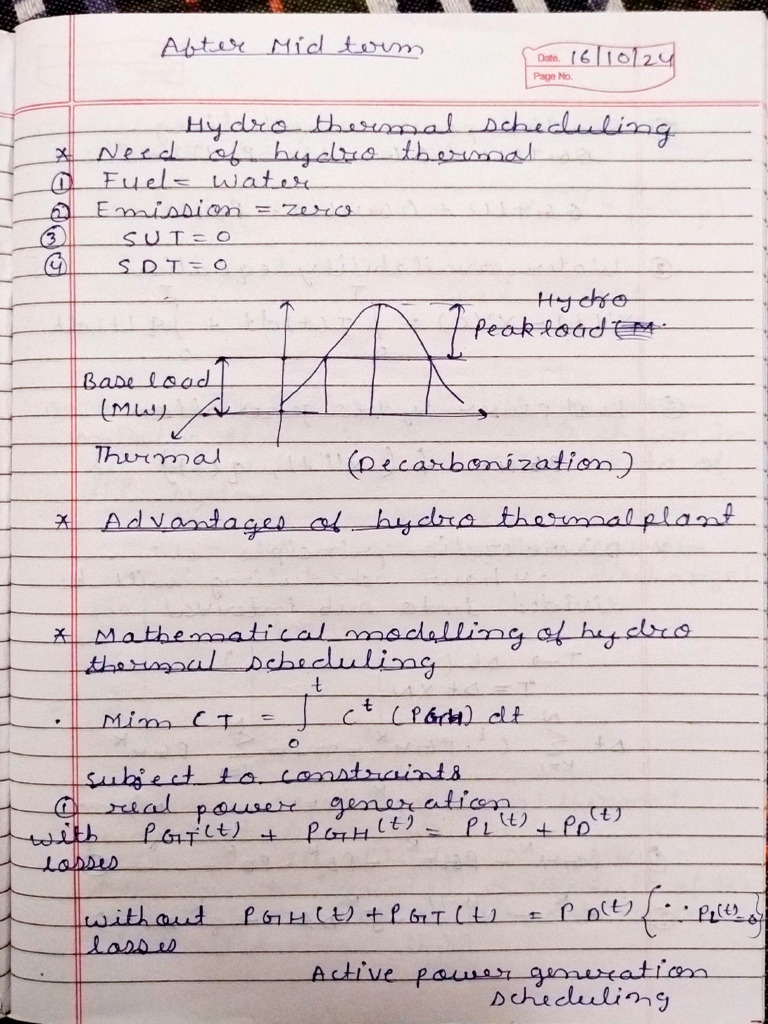 After Mid term
Date. 16/10/24
Page No.
Hydro thermal scheduling
* Need of hydro thermal
① Fuel = Water
② Emission = zero
③ SUT = 0
④ SDT = 0
Hydro
Peak load
Base load
(MW)
Thermal
(Decarbonization)
* Advantages of hydro thermal plant
* Mathematical modelling of hydro
thermal scheduling
. Mim CT = ∫₀ᵗ Cᵗ (PGH) dt
subject to constraints
① real power generation
with PGT(t) + PGH(t) = PL(t) + PD(t)
losses
without PGH(t) + PGT(t) = PD(t) {∵ PL(t)=0}
losses
Active power generation
scheduling